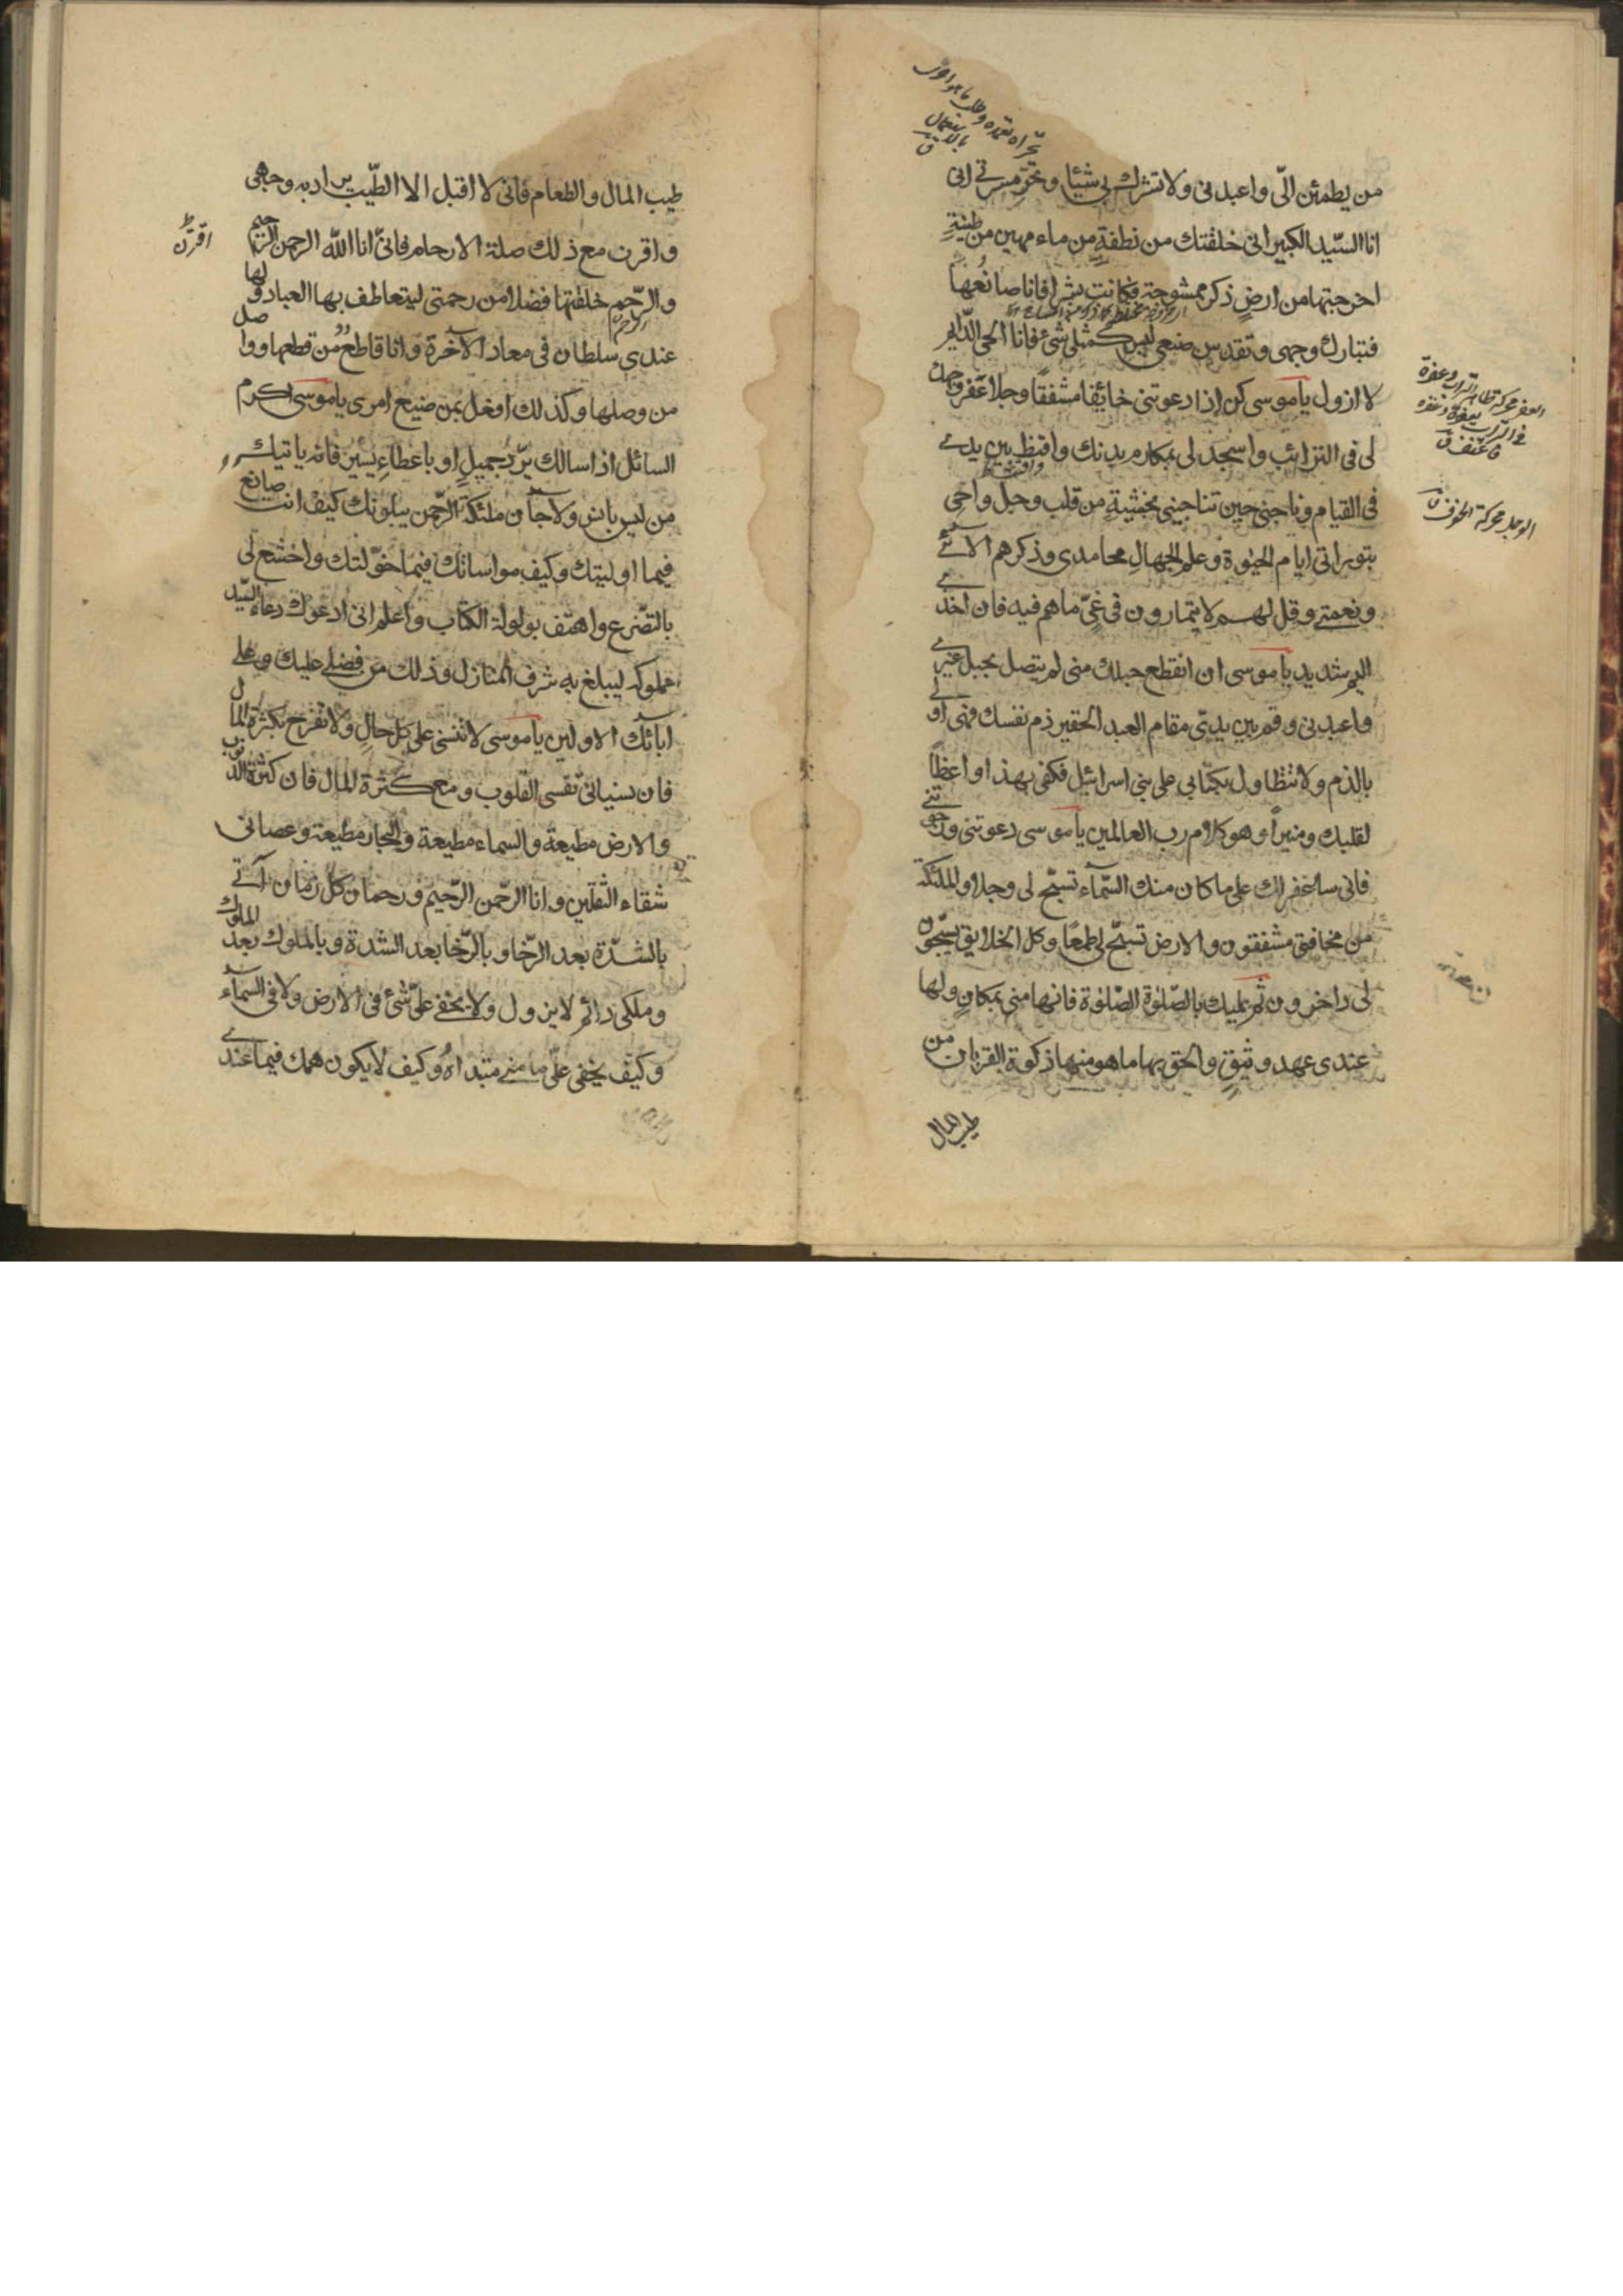 من يطمئن الىّ واعبدنى ولا تشرك بى شيئا وتحرّ مسرتى انى
انا السّيد الكبير انى خلقتك من نطفةٍ من ماء مهين من طينةٍ
اخرجتها من ارضٍ ممشوجة فكانت بشرا فانا صانعها
فتبارك وجهى وتقدس صنعى ليس كمثلى شئ وانا الحى الدّايم
لا ازول يا موسى كن اذا دعوتنى خائفا مشفقًا وجلا عفّر وجهك
لى فى التراب واسجد لى بمكارم بدنك واقنت بين يدى
فى القيام وناجنى حين تناجينى بخشيةٍ من قلب وجل واحى
بتوراتى ايام الحيوة وعلم الجهال محامدى وذكرهم الائى
ونعمتى وقل لهم لا يتمارون فى غىّ ما هم فيه فان اخذى
اليم شديد يا موسى ان انقطع حبلك منى لم يتصل بحبل غيرى
فاعبدنى وقم بين يدىّ مقام العبد الحقير ذم نفسك فهى اولى
بالذم ولا تتطاول بكتابى على بنى اسرائيل فكفى بهذا واعظاً
لقلبك ومنيراً وهو كلام رب العالمين يا موسى دعوتنى ورجوتنى
فانى ساغفر لك على ما كان منك السّماء تسبّح لى وجلا والملئكة
من مخافتى مشفقون والارض تسبّح لى طمعًا وكل الخلايق يسبّحون
لى داخرون ثم عليك بالصّلوة الصّلوة فانها منى بمكانٍ ولها
عندى عهد وثيقٍ والحق بها ما هو منها زكوة القربان من
طيب المال
العفر محركة ظاهر التراب وعفره
فى التراب يعفره وعفره
فانعفر ق
الوجل محركة الخوف ق
طيب المال والطعام فانى لا اقبل الا الطّيب يراد به وجهى
واقرن مع ذلك صلة الارحام فانىّ انا الله الرحمن الرّحيم
والرّحم خلقتها فضلا من رحمتى ليتعاطف بها العباد ولها
عندى سلطان فى معاد الآخرة وانا قاطع من قطعها وواصل
من وصلها وكذلك افعل بمن ضيع امرى يا موسى اكرم
السائل اذا سالك بردّ جميلٍ او باعطاءٍ يسير فانه ياتيك
من ليس بانس ولا جان ملئكة الرّحمن يبلونك كيف انت صانع
فيما اوليتك وكيف مواساتك فيما خوّلتك واخشع لى
بالتّضرع واهتف بولولة الكتاب واعلم انى ادعوك دعاء السّيد
مملوكه ليبلغ به شرف المنازل وذلك من فضلى عليك وعلى
ابائك الاولين يا موسى لا تنسنى على كل حالٍ ولا تفرح بكثرة المال
فان نسيانى تقسى القلوب ومع كثرة المال فان كثرة الذنوب
والارض مطيعة والسماء مطيعة والبحار مطيعة وعصيانى
شقاء الثقلين وانا الرّحمن الرّحيم ورحمان كل زمان آتى
بالشدّة بعد الرّخا وبالرّخا بعد الشدة وبالملوك بعد الملوك
وملكى دائم لا يزول ولا يخفى علىّ شئ فى الارض ولا فى السماء
وكيف يخفى علىّ ما منى مبتداه وكيف لا يكون همك فيما عندى